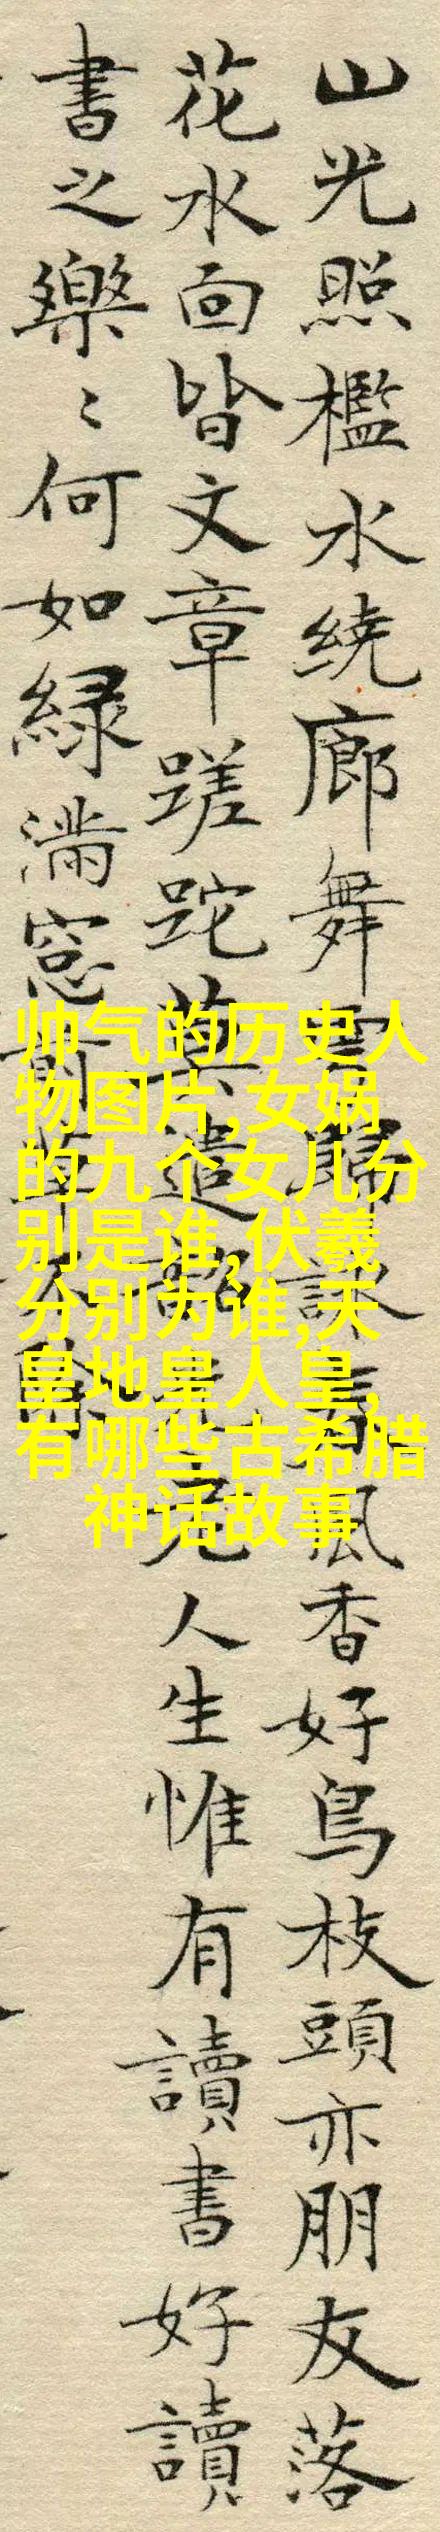 山光照檻水绕廊舞雩歸詠春風香好鳥枝頭亦朋友落
花水面皆文章蹉跎莫遣韶光老人生惟有讀書好讀
書之樂〻何如緑滿窓前草不除
帅气的历史人
物图片,女娲
的九个女儿分
别是谁,伏羲
分别为谁,天
皇地皇人皇,
有哪些古希腊
神话故事